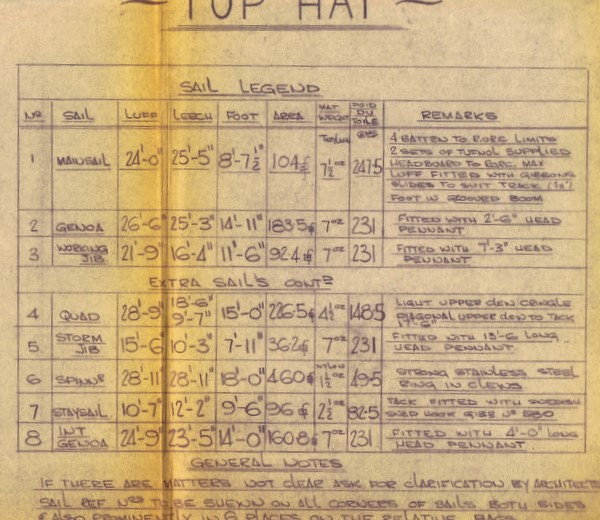 TOP HAT
SAIL LEGEND
No SAIL LUFF LEECH FOOT AREA MAT WEIGHT POID DU TOILE GRS REMARKS
1 MAINSAIL 24'-0" 25'-5" 8'-7½" 104 7½oz 247.5
4 BATTEN TO RORC LIMITS
2 SETS OF TUFNOL SUPPLIED
HEADBOARD TO RORC MAX
LUFF FITTED WITH GIBBONS
SLIDES TO SUIT TRACK
FOOT IN GROOVED BOOM
2 GENOA 26'-6" 25'-3" 14'-11" 183.5 7oz 231 FITTED WITH 2'-6" HEAD
PENNANT
3 WORKING JIB 21'-9" 16'-4" 11'-6" 92.4 7oz 231 FITTED WITH 7'-3" HEAD
PENNANT
EXTRA SAILS CONTD
4 QUAD 28'-9" 18'-6" 9'-7" 15'-0" 226.5 4½oz 148.5 LIGHT UPPER CLEW CRINGLE
DIAGONAL UPPER CLEW TO TACK
17'-6"
5 STORM JIB 15'-6 10'-3" 7'-11" 36.2 7oz 231 FITTED WITH 13'-6 LONG
HEAD PENNANT
6 SPINNR 28'-11" 28'-11" 18'-0" 460 NYLON 1½oz 49.5 STRONG STAINLESS STEEL
RING IN CLEWS
7 STAYSAIL 10'-7" 12'-2" 9'-6" 96 2½oz 82.5 TACK FITTED WITH SWEDISH
SNAP HOOK GIBB No 880
8 INT GENOA 24'-9" 23'-5" 14'-0" 160.8 7oz 231 FITTED WITH 4'-0" LONG
HEAD PENNANT
GENERAL NOTES
IF THERE ARE MATTERS NOT CLEAR ASK FOR CLARIFICATION BY ARCHITECTS
SAIL REF NOS TO BE SHEWN ON ALL CORNERS OF SAILS BOTH SIDES
& ALSO PROMINENTLY IN 6 PLACES ON THE RELATIVE BAGS